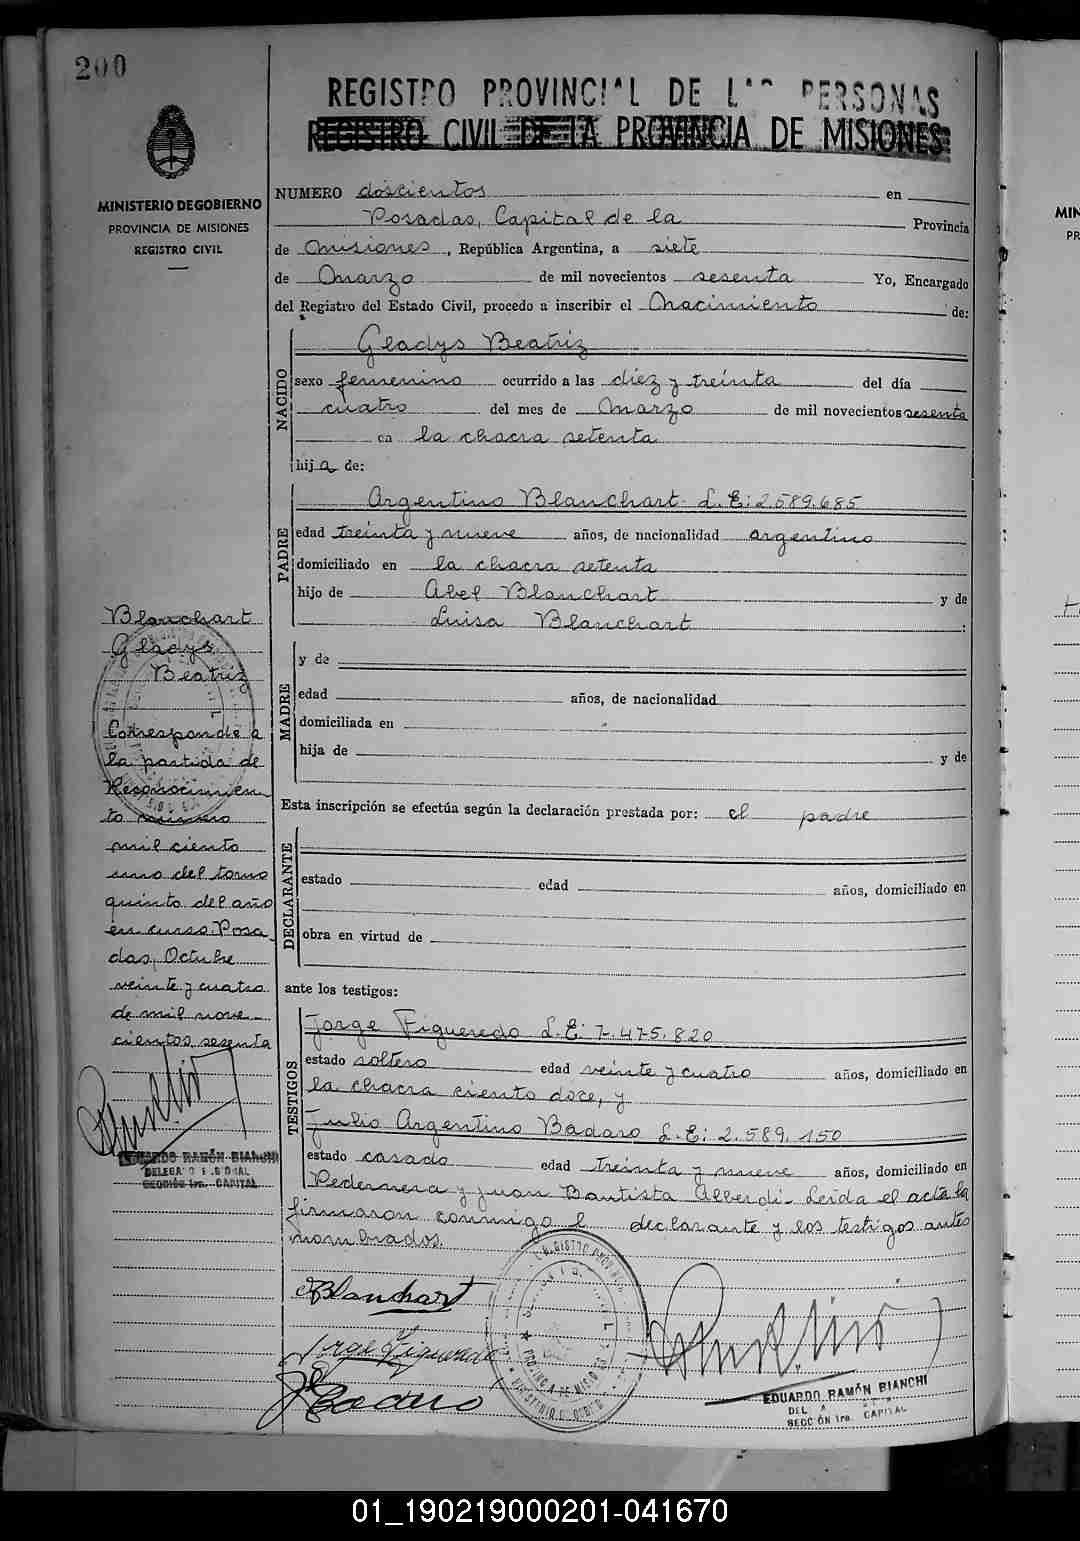 200
REGISTRO PROVINCIAL DE LAS PERSONAS
REGISTRO CIVIL DE LA PROVINCIA DE MISIONES
MINISTERIO DE GOBIERNO
PROVINCIA DE MISIONES
REGISTRO CIVIL
NUMERO doscientos en
Posadas, Capital de la Provincia
de Misiones, República Argentina, a siete
de Marzo de mil novecientos sesenta Yo, Encargado
del Registro del Estado Civil, procedo a inscribir el Nacimiento de:
NACIDO
Gladys Beatriz
sexo femenino ocurrido a las diez y treinta del día
cuatro del mes de Marzo de mil novecientos sesenta
en la chacra setenta
hija de:
PADRE
Argentino Blanchart L.E: 2.589.685
edad treinta y nueve años, de nacionalidad argentino
domiciliado en la chacra setenta
hijo de Abel Blanchart y de
Luisa Blanchart :
MADRE
y de
edad años, de nacionalidad
domiciliada en
hija de y de
Esta inscripción se efectúa según la declaración prestada por: el padre
DECLARANTE
estado edad años, domiciliado en
obra en virtud de
ante los testigos:
TESTIGOS
Jorge Figueredo L.E: 7.475.820
estado soltero edad veinte y cuatro años, domiciliado en
la chacra ciento doce, y
Julio Argentino Badaro L.E: 2.589.150
estado casado edad treinta y nueve años, domiciliado en
Pedernera y Juan Bautista Alberdi- Leida el acta la
firmaron conmigo el declarante y los testigos antes
nombrados.
Blanchart
Jorge Figueredo
Badaro
EDUARDO RAMÓN BIANCHI
SECCIÓN 1ra. CAPITAL
Blanchart
Gladys
Beatriz
Corresponde a
la partida de
Reconocimien
to número
mil ciento
uno del tomo
quinto del año
en curso. Posa
das, Octubre
veinte y cuatro
de mil nove-
cientos sesenta
EDUARDO RAMÓN BIANCHI
SECCIÓN 1ra. CAPITAL
MIN
PR
01_190219000201-041670